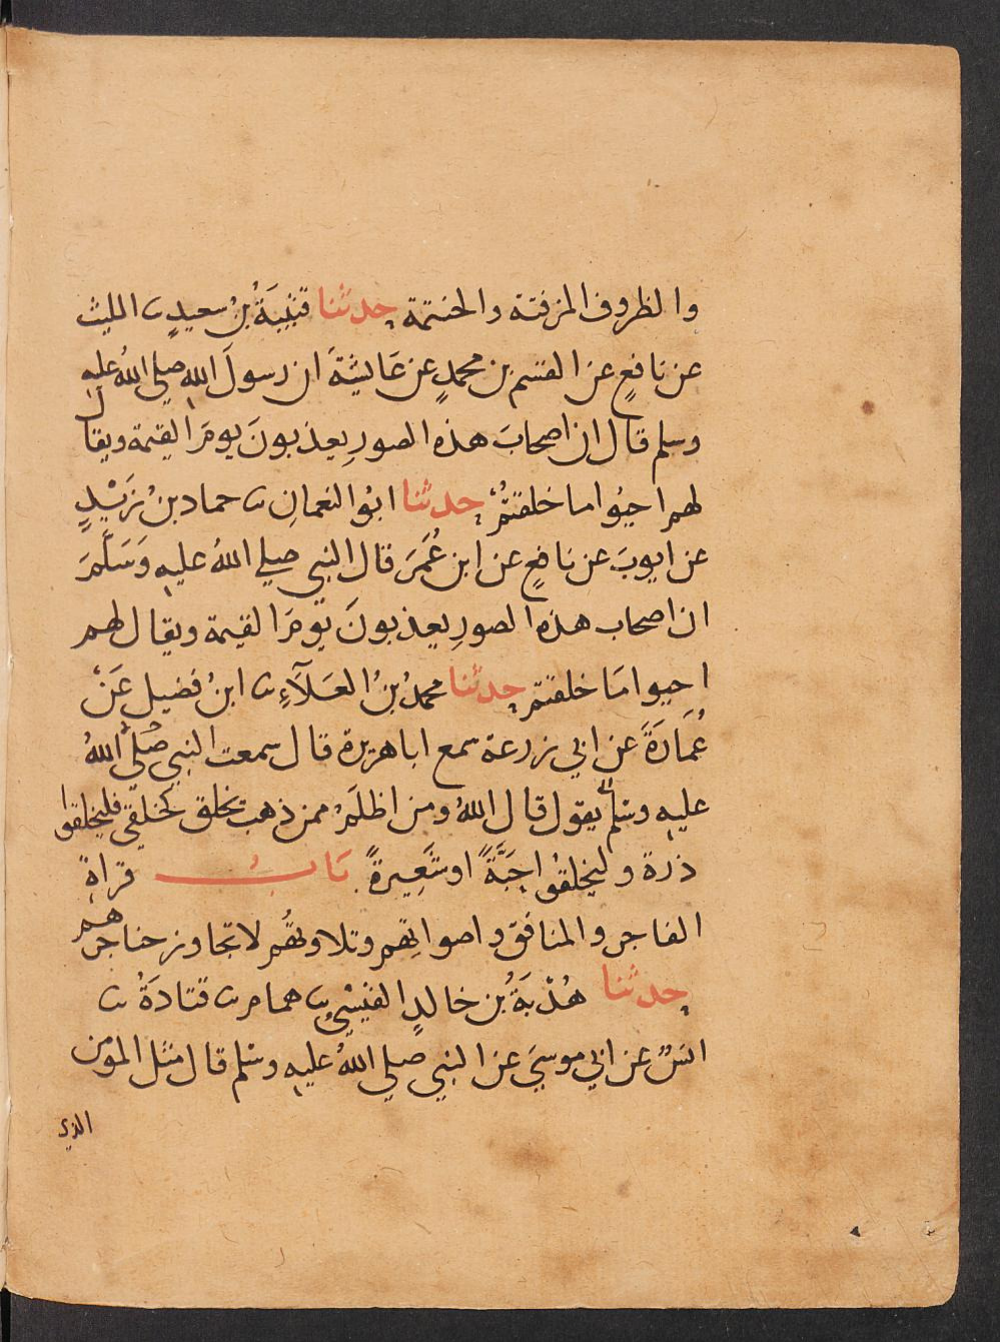 والظروف المزفتة والحنتمة حدثنا قتيبَةُ بنُ سعيدٍ ثنا الليث
عن نافعٍ عن القسم بن محمدٍ عن عَائيشةَ ان رسولَ اللهِ صلي اللهُ عليهِ
وسلم قال ان اصحابَ هذه الصورِ يعذبونَ يومَ القيمة ويقال
لهم احيُوا ما خلقتمْ حدثنا ابُوا النعمانِ ثنا حماد بنُ زَيْدٍ
عن ايوبَ عن نافعٍ عن ابن عُمَرَ قال النبي صلي اللهُ عليهِ وَسَلَّمَ
ان اصحاب هذه الصورِ يعذبونَ يومَ القيمة ويقال لهم
احيوا مَا خلقتم حدثنا محمدُ بنُ العَلَآءِ ثنا ابنُ فضيل عَنْ
عُمَارَةَ عن ابي زرعة سمع ابا هريرة قال سمعت النبي صَلَّي اللهُ
عليهِ وسلم يقول قال اللهُ ومن اظلَمُ ممن ذهب يخلق كخلقي فليخلقوا
ذرة وليخلقُوا حَبَّةً اوشَعِيرةً بَابُ قراةِ
الفاجر والمنافق واصواتِهم وتلاوتُهُم لاتجاوز حناجرهم
حدثنا هُدْبَةُ بن خالدٍ القيسْيُ ثنا همام ثنا قتادَةُ ثنا
انسٌ عن ابي موسيَ عن النبي صلي اللهُ عليهِ وسلم قال مثل المؤمن
الذي